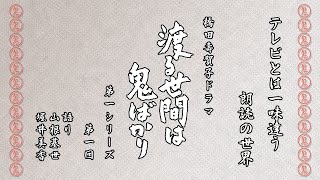 テレビとは一味違う
朗読の世界
橋田壽賀子ドラマ
渡る世間は
鬼ばかり
第一シリーズ
第一回
語り
山根基世
堀井美香